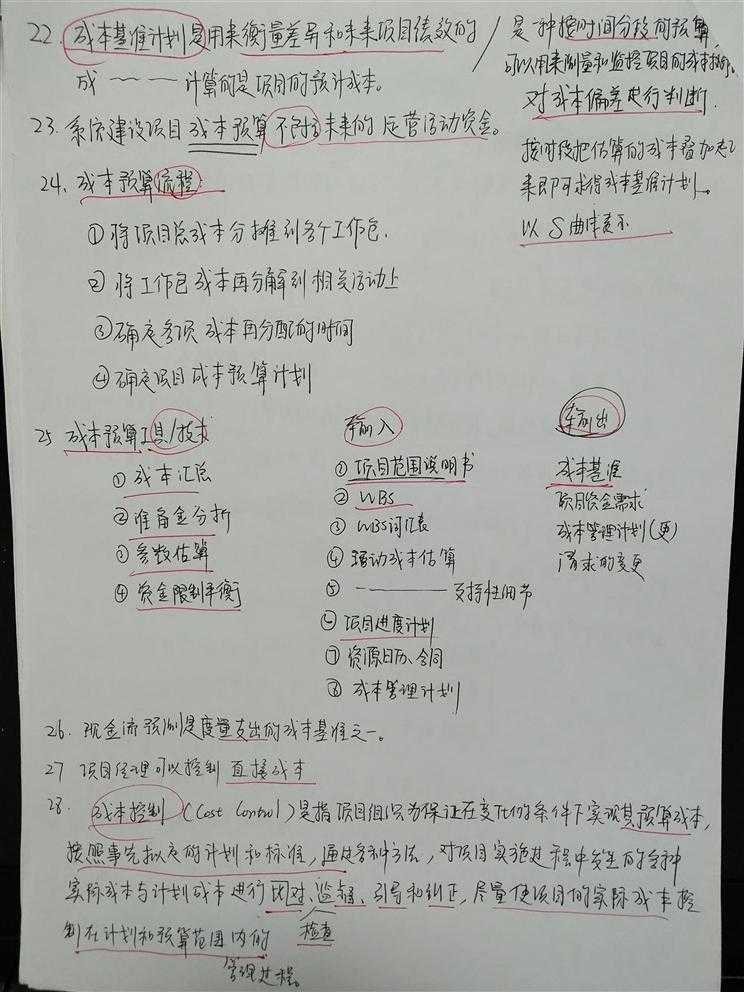 22. 成本基准计划是用来衡量差异和未来项目绩效的
成 —— —— 计算的是项目的预计成本。
是一种按时间分段的预算,
可以用来测量和监控项目的成本执行.
对成本偏差进行判断.
按时段把估算的成本叠加起
来即可求得成本基准计划。
以 S 曲线表示
23. 系统建设项目 成本预算不包括未来的 运营活动资金。
24. 成本预算流程:
① 将项目总成本分摊到各个工作包.
② 将工作包成本再分解到相关活动上
③ 确定各项成本再分配的时间
④ 确定项目成本预算计划
25 成本预算工具/技术
① 成本汇总
② 准备金分析
③ 参数估算
④ 资金限制平衡
输入
① 项目范围说明书
② WBS
③ WBS词汇表
④ 活动成本估算
⑤ ———— 支持性细节
⑥ 项目进度计划
⑦ 资源日历、合同
⑧ 成本管理计划
输出
成本基准
项目资金需求
成本管理计划(更)
请求的变更
26. 现金流预测是度量支出的成本基准之一。
27 项目经理可以控制 直接成本
28. 成本控制 (Cost Control) 是指项目组织为保证在变化的条件下实现其预算成本,
按照事先拟定的计划和标准, 通过各种方法, 对项目实施过程中发生的各种
实际成本与计划成本进行比对、监督、引导和纠正, 尽量使项目的实际成本控
制在计划和预算范围内的
检查
管理过程。